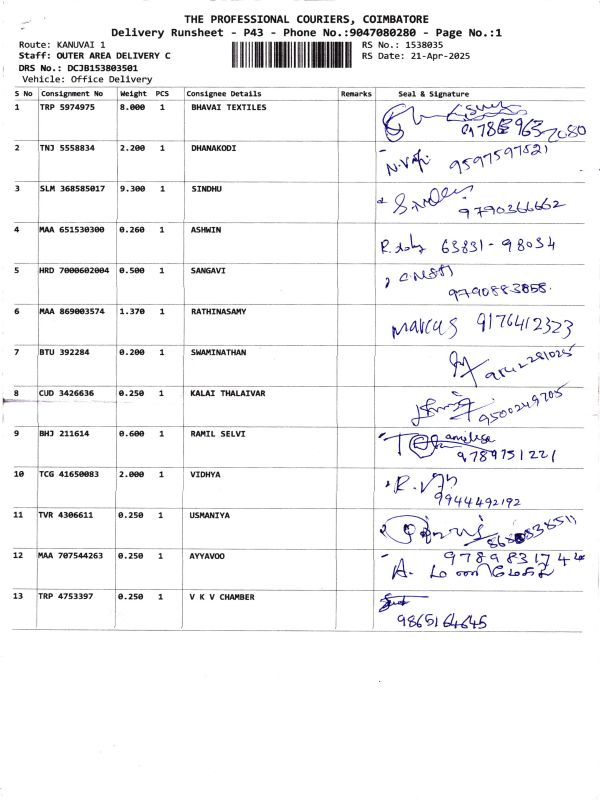 THE PROFESSIONAL COURIERS, COIMBATORE
Delivery Runsheet - P43 - Phone No.:9047080280 - Page No.:1
Route: KANUVAI 1 RS No.: 1538035
Staff: OUTER AREA DELIVERY C RS Date: 21-Apr-2025
DRS No.: DCJB153803501
Vehicle: Office Delivery
S No Consignment No Weight PCS Consignee Details Remarks Seal & Signature
1 TRP 5974975 8.000 1 BHAVAI TEXTILES
2 TNJ 5558834 2.200 1 DHANAKODI 9597597521
3 SLM 368585017 9.300 1 SINDHU 9790366662
4 MAA 651530300 0.260 1 ASHWIN 63831-98034
5 HRD 7000602004 0.500 1 SANGAVI 9790883858
6 MAA 869003574 1.370 1 RATHINASAMY Marcus 9176412323
7 BTU 392284 0.200 1 SWAMINATHAN
8 CUD 3426636 0.250 1 KALAI THALAIVAR 9500249705
9 BHJ 211614 0.600 1 RAMIL SELVI 9789751221
10 TCG 41650083 2.000 1 VIDHYA 9944492192
11 TVR 4306611 0.250 1 USMANIYA
12 MAA 707544263 0.250 1 AYYAVOO
13 TRP 4753397 0.250 1 V K V CHAMBER 9865164645